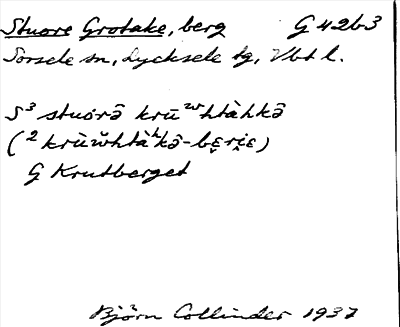 Stuore Grotake, berg G 42b3
Sorsele sn, Lycksele tg, Vbt l.
S³ stuórə̂ krūʷhtàhkə̂
(² krùw̆htàʰkə̂-bę̀ri̭ɛ)
G Krutberget
Björn Collinder 1937